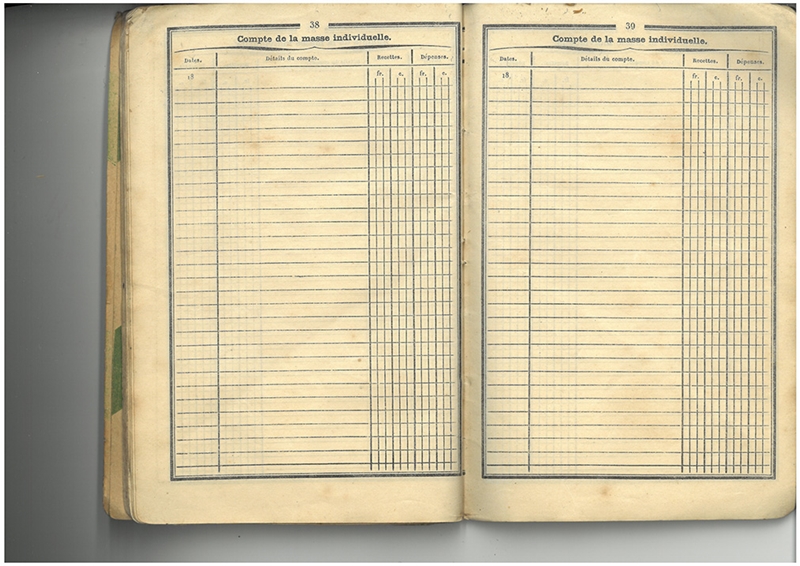 38
Compte de la masse individuelle.
Dates. Détails du compte. Recettes. Dépenses.
18 fr. c. fr. c.
39
Compte de la masse individuelle.
Dates. Détails du compte. Recettes. Dépenses.
18. fr. c. fr. c.